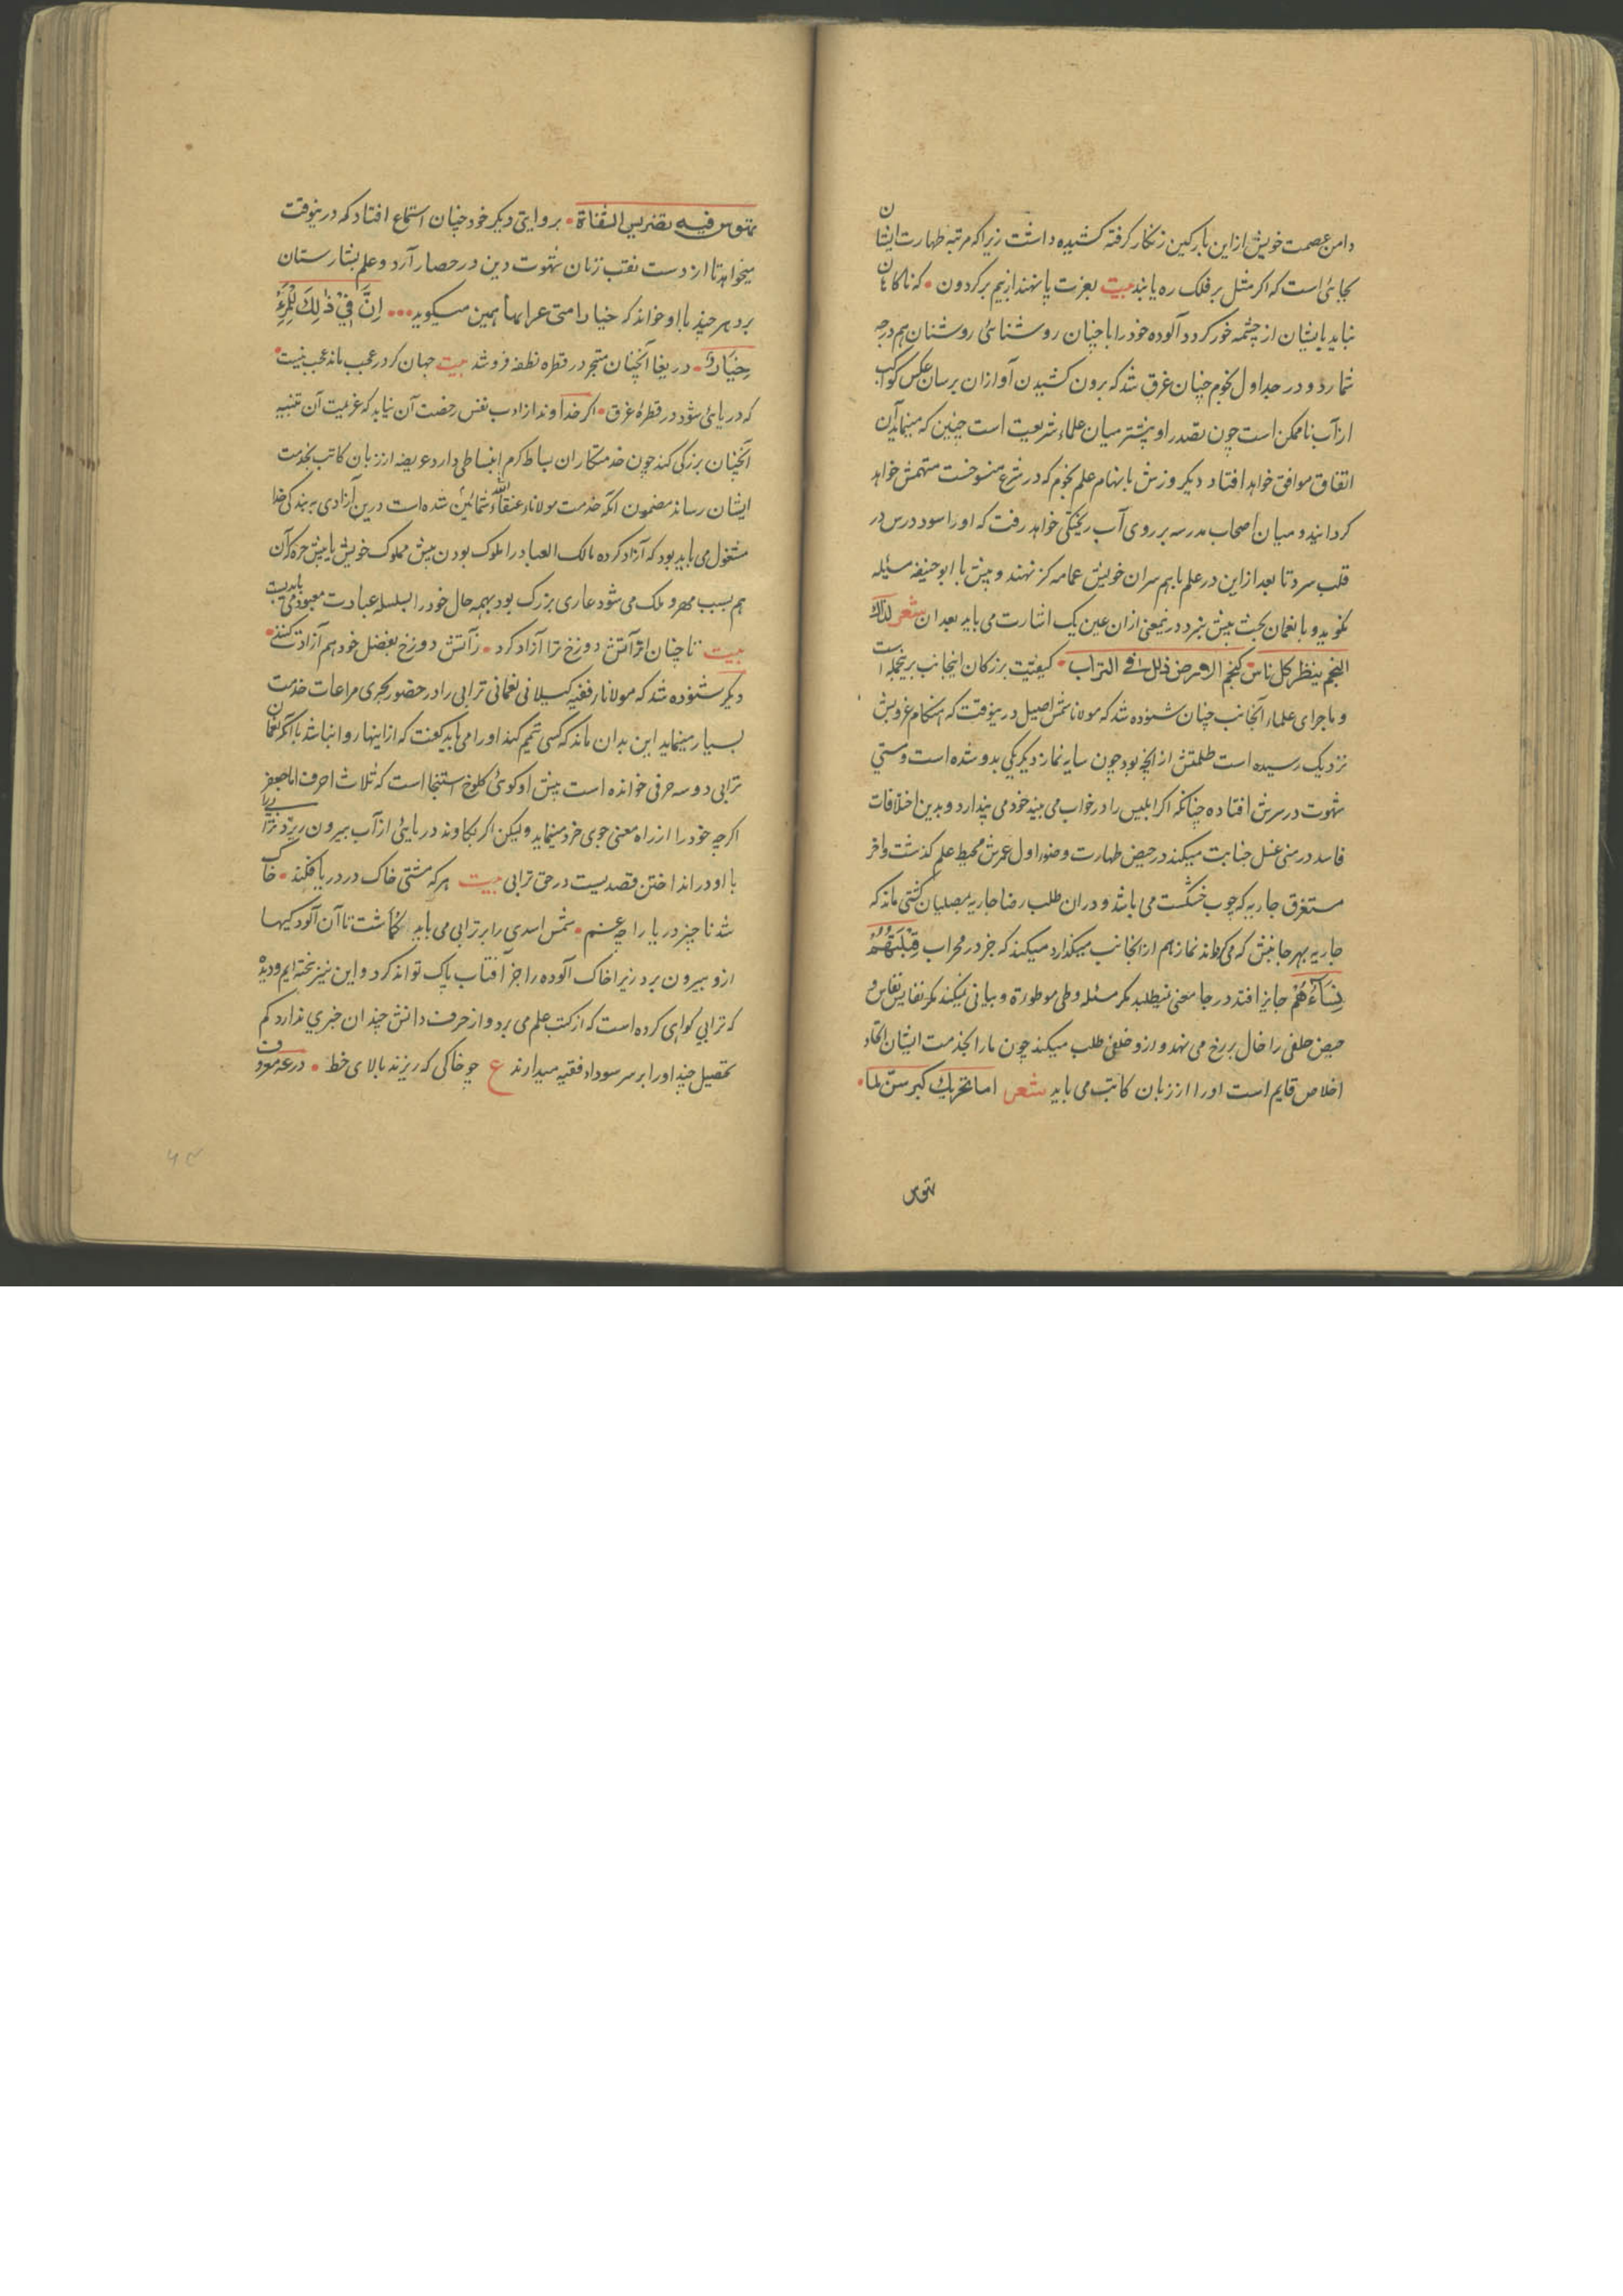 دامن عصمت خویش از این بارکین زنکار کرفته کشیده داشت زیرا که مرتبه طهارت ایشان
بجائی است که اکر مثل بر فلک ره یابند بیت بعزت پا نهند از بیم بر کردون • که ناکاهان
نباید پایشان از چشمه خور کردد آلوده خود را با چنان روشنائی روشنان هم درجه
شمارد و در جداول نجوم چنان غرق شد که برون کشیدن آواز ان برسان عکس کواکب
از آب ناممکن است چون بصدر او بیشتر میان علماء شریعت است چنین که مینماید آن
اتفاق موافق خواهد افتاد دیکر ورزش باتهام علم نجوم که در شرع منسوخست متهمش خواهد
کردانید و میان اصحاب مدرسه بر روی آب ریختکی خواهد رفت که او را سود درس در
قلب سرد تا بعد از این در علم با بهم سران خویش عمامه کز نهند و پیش با ابو حنیفه مسئله
نکوید و با نعمان بحث پیش نبرد درینمعنی از ان عین یک اشارت می باید بعد ان شعر لذاك
النجم ینظر کل ناس کنجم الارض ذلك فی التراب • کیفیت بزرکان اینجانب برینجمله است
و ماجرای علماء آنجانب چنان شنوده شد که مولانا شمس اصیل درینوقت که هنکام غروبش
نزدیک رسیده است ظلمتش از آنچه بود چون سایه نماز دیکر یکی بدو شده است و مستی
شهوت در سرش افتاده چنانکه اکر ابلیس را در خواب می بیند خود می پندارد و بدین اختلافات
فاسد در منی غسل جنابت میکند در حیض طهارت وضو اول عمرش محیط علم کذشت و آخر
مستغرق جاریه که چوب خشکست می باشد و دران طلب رضا جاریه بمصلیان کشتی ماند که
جاریه بهر جانبش که می کرداند نماز هم از انجانب میکذارد میکند که جز در محراب قِبْلَتَهُمْ
نِسَاءُهُمْ جایز افتد در جا معنی نیطلبد مکر مسئله وطی موطورة و بیانی نمیکند مکر نفایس نفاس و
حیض خلفی را خال بر رخ می نهد و ازو خلفی طلب میکند چون ما را بخدمت ایشان اتحاد
اخلاص قایم است او را از زبان کاتب می باید شعر اما تخریك کبر سن لما •
تتوس
تتوس فیه بضریس القناة • بروایتی دیکر خود چنان استماع افتاد که درینوقت
میخواهد تا از دست نقب زنان شهوت دین در حصار آرد و علم بشارستان
برد هر چند با او خواند که خیار امتی عرا بها همین میکوید ••• اِنَّ فِیْ ذٰلِكَ
خِیَارُ • دریغا آنچنان متبحر در قطره نطفه فرو شد بیت جهان کر در عجب ماند عجب نیست •
که دریائی شود در قطرۀ غرق • اکر خداوند از ادب نفس رخصت آن نیابد که عزیمت آن تنبیه
آنچنان بزرکی کند چون خدمتکاران بساط کرم انبساطی دارد عریضه از زبان کاتب بخدمت
ایشان رساند مضمون آنکه خدمت مولانا عتقاء الله شمائین شده است درین آزادی به بندکی خدا
مشغول می باید بود که آزاد کرده مالک العباد را ملوک بودن پیش مملوک خویش یا پیش حره که آن
هم بسبب مهر و ملک می شود عاری بزرک بود بهمه حال خود را بسلسله عبادت معبود می باید بست
بیت تا چنان کز آتش دوزخ ترا آزاد کرد • زآتش دوزخ بفضل خود هم آزادت کند •
دیکر شنوده شد که مولانا رفقیه کیلانی نعمانی ترابی را در حضور بحری مراعات خدمت
بسیار مینماید این بدان ماند که کسی تیمم کند او را می باید کفت که از اینها روا نباشد با آنکه نعمان
ترابی دو سه حرفی خوانده است پیش او کوئی کلوخ استنجا است که ثلاث احرف اما جعفر
اکر چه خود را از راه معنی جوی خرد مینماید ولیکن اکر بکاوند دریائی از آب بیرون ریزد ترابی را
با او در انداختن قصدیست در حق ترابی بیت هر که مشتی خاک در دریا فکند • خاک
شد ناچیز دریا را چه غم • شمس اسدی را بر ترابی می باید کماشت تا آن آلودکیها
ازو بیرون برد زیرا خاک آلوده را جز آفتاب پاک تواند کرد و این نیز پخته ایم و دیده
که ترابی کواهی کرده است که از کتب علم می برد و از حرف دانش چندان خبری ندارد کم
تحصیل چند او را بر سر سوداء فقیه میدارند ع چو خاکی که ریزند بالای خط •